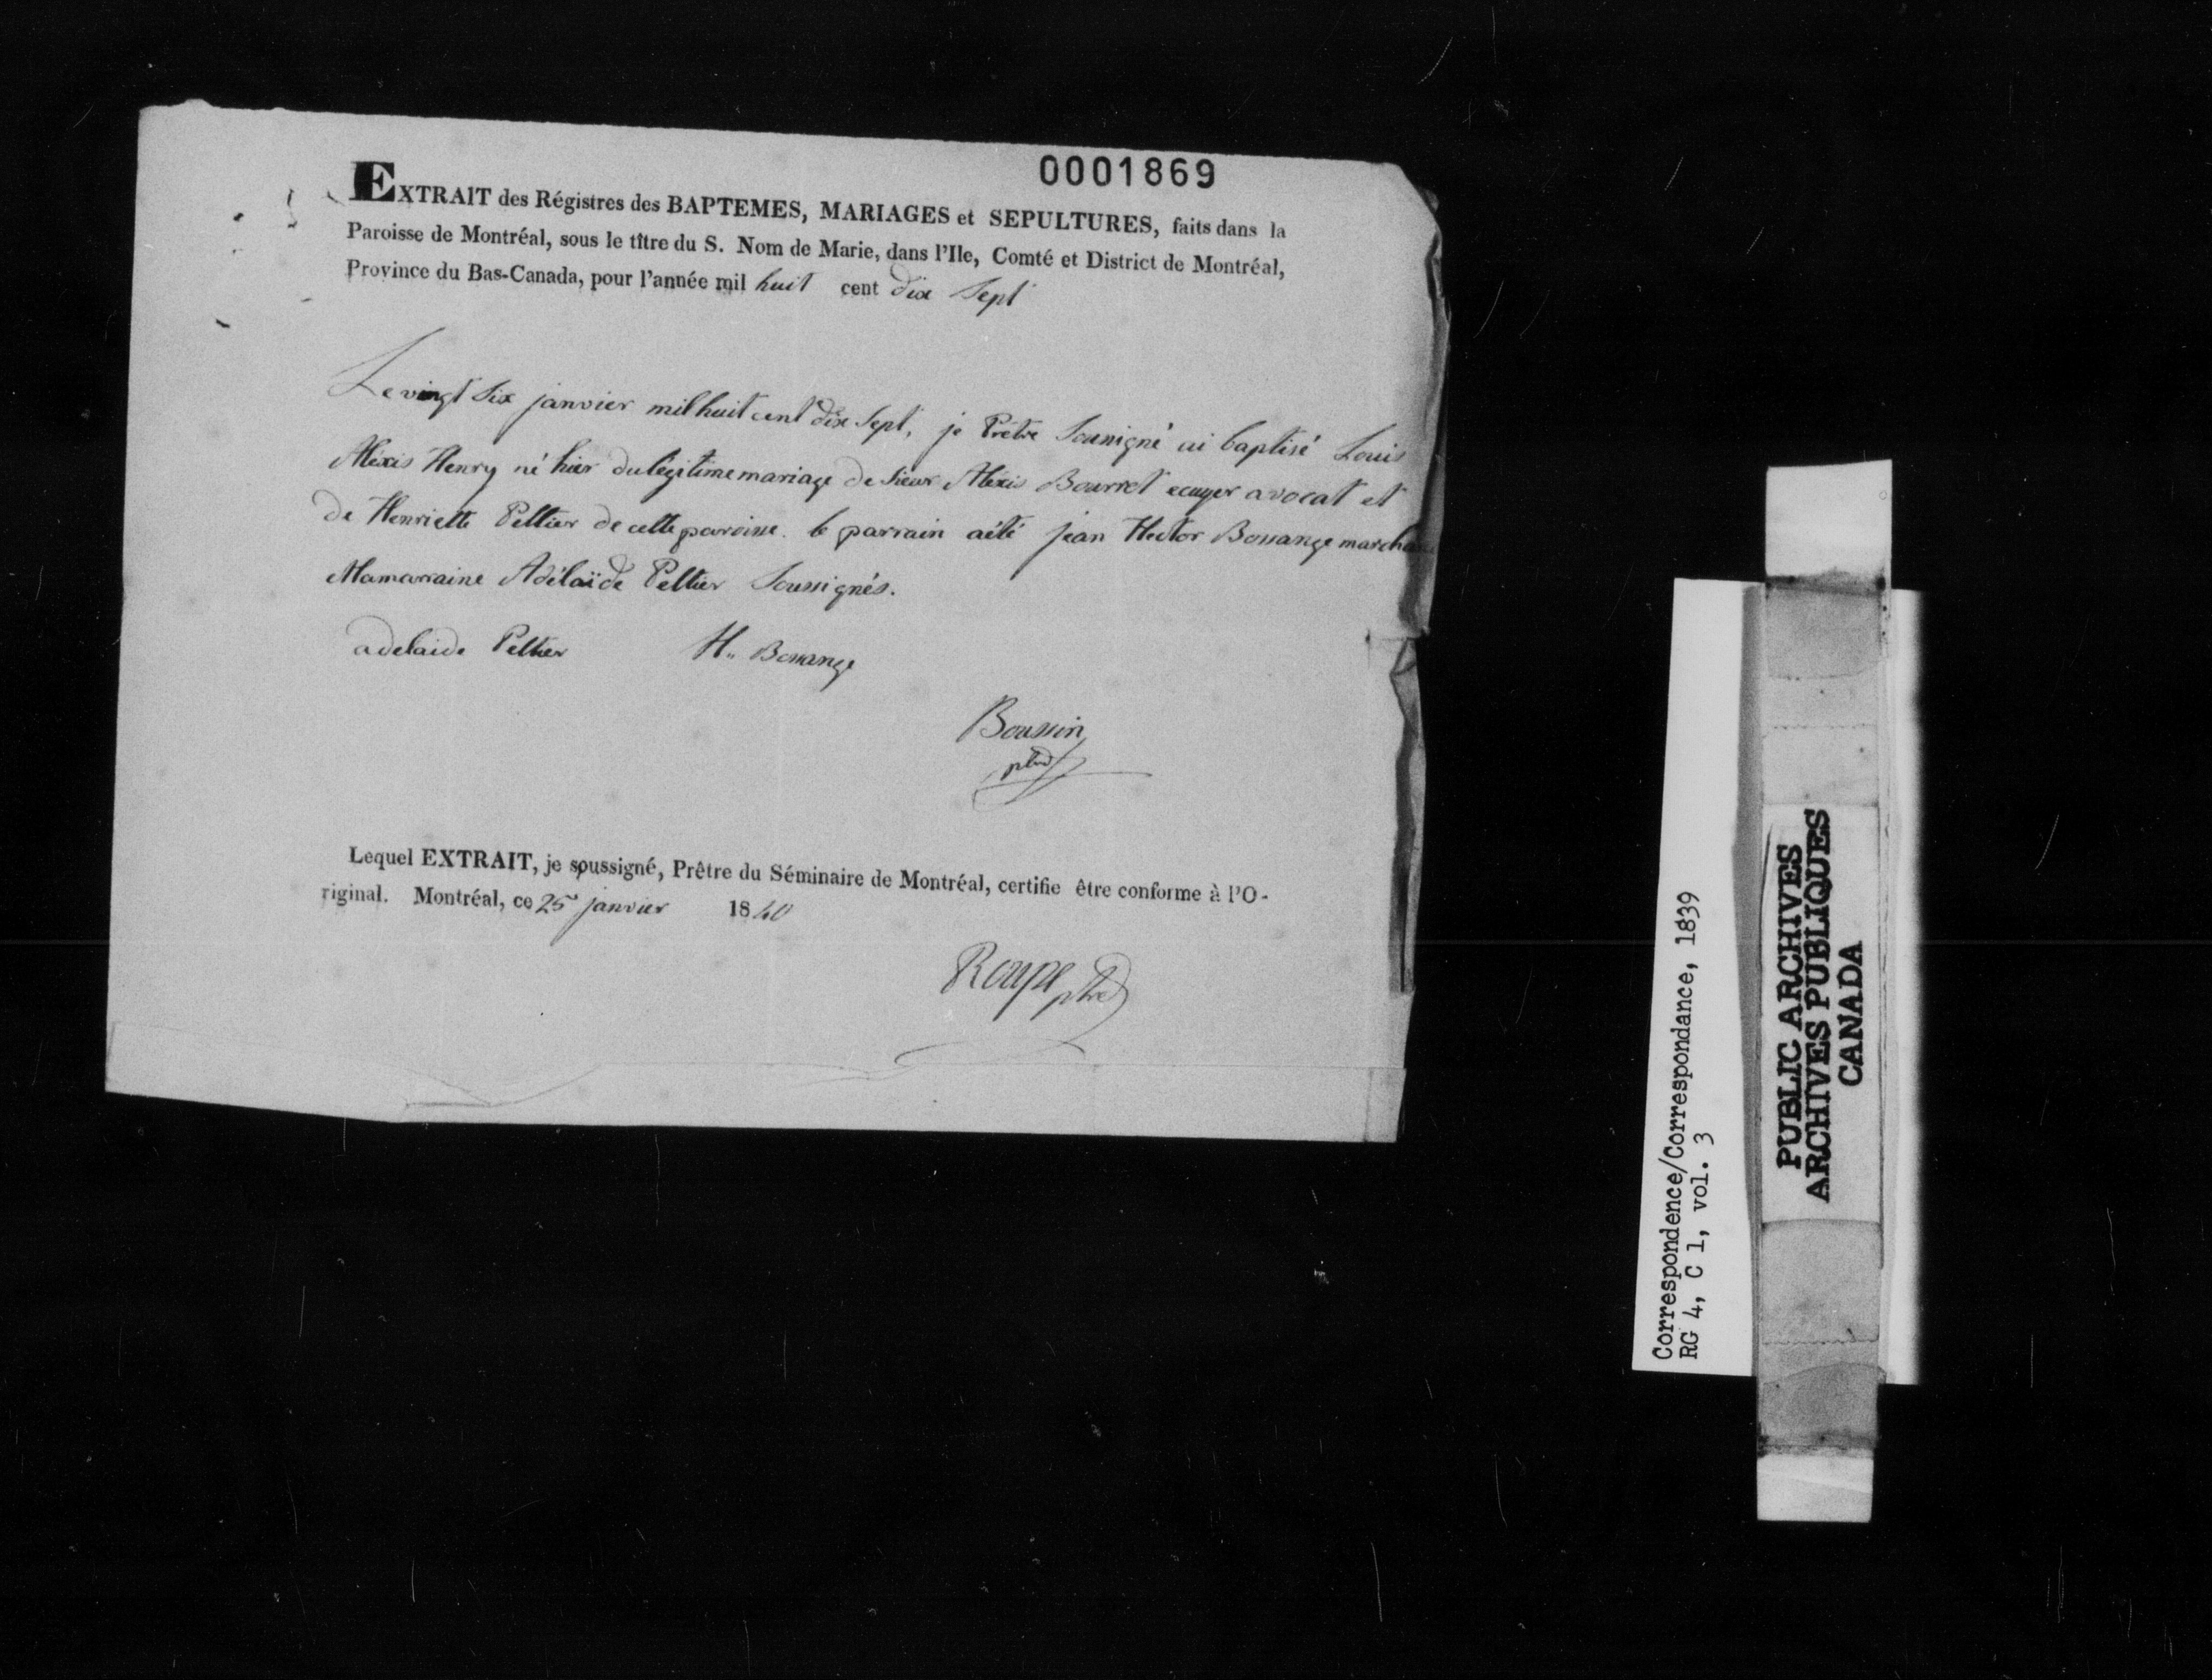 0001869
EXTRAIT des Régistres des BAPTEMES, MARIAGES et SEPULTURES, faits dans la
Paroisse de Montréal, sous le tître du S. Nom de Marie, dans l'Ile, Comté et District de Montréal,
Province du Bas-Canada, pour l'année mil huit cent dix Sept
Le vingt Six janvier mil huit cent dix Sept, je Prêtre Soussigné ai baptisé Louis
Alexis Henry né hier du légitime mariage de Sieur Alexis Bourret ecuyer avocat et
de Henriette Peltier de cette paroisse. le parrain a été jean Hector Bossange marchand
& la marraine Adélaïde Peltier Soussignés.
adelaide Peltier H.. Bossange
Boussin
ptre
Lequel EXTRAIT, je soussigné, Prêtre du Séminaire de Montréal, certifie être conforme à l'O-
riginal. Montréal, ce 25 janvier 1840
Roupe ptre
Correspondence/Correspondance, 1839
RG 4, C 1, vol. 3
PUBLIC ARCHIVES
ARCHIVES PUBLIQUES
CANADA